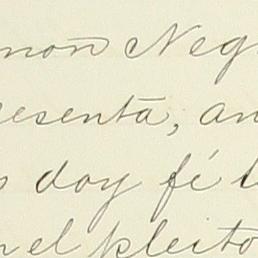 mon Neg
esentā, an
s doy fé l
el pleito